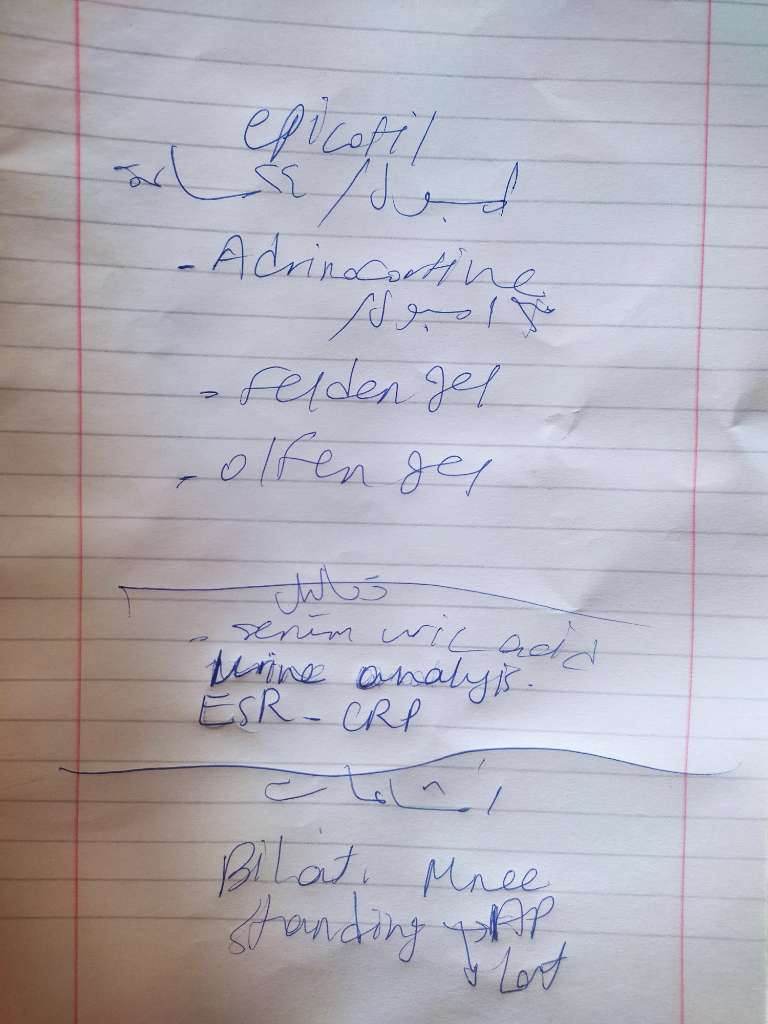 epicotil
امبول /
- Adrinocortine
امبول /
- Felden gel
- olfen gel
تحاليل
- serum uric acid
urine analysis.
ESR - CRP
اشاعات
Bilat. Knee
standing → AP
↓ Lat